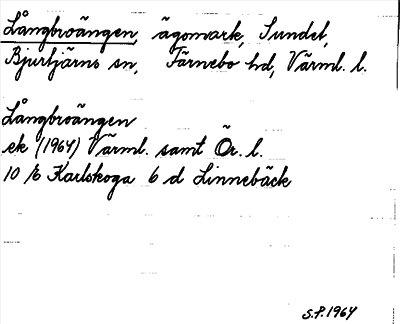 Långbroängen, ägomark, Sundet,
Bjurtjärns sn, Färnebo hd, Värml. l.
Långbroängen
ek (1964) Värml. samt Ör. l.
10 E Karlskoga 6 d Linnebäck
S.P. 1964